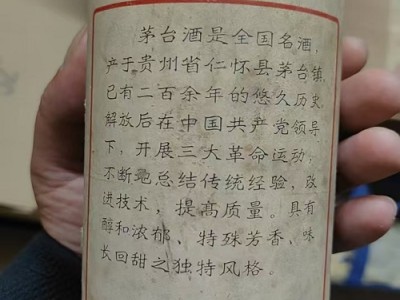 茅台酒是全国名酒，
产于贵州省仁怀县茅台镇，
已有二百余年的悠久历史，
解放后在中国共产党领导
下，开展三大革命运动，
不断地总结传统经验，改
进技术，提高质量。具有
醇和浓郁、特殊芳香、味
长回甜之独特风格。